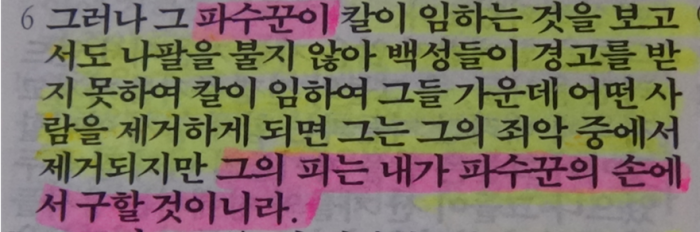 6 그러나 그 파수꾼이 칼이 임하는 것을 보고
서도 나팔을 불지 않아 백성들이 경고를 받
지 못하여 칼이 임하여 그들 가운데 어떤 사
람을 제거하게 되면 그는 그의 죄악 중에서
제거되지만 그의 피는 내가 파수꾼의 손에
서 구할 것이니라.